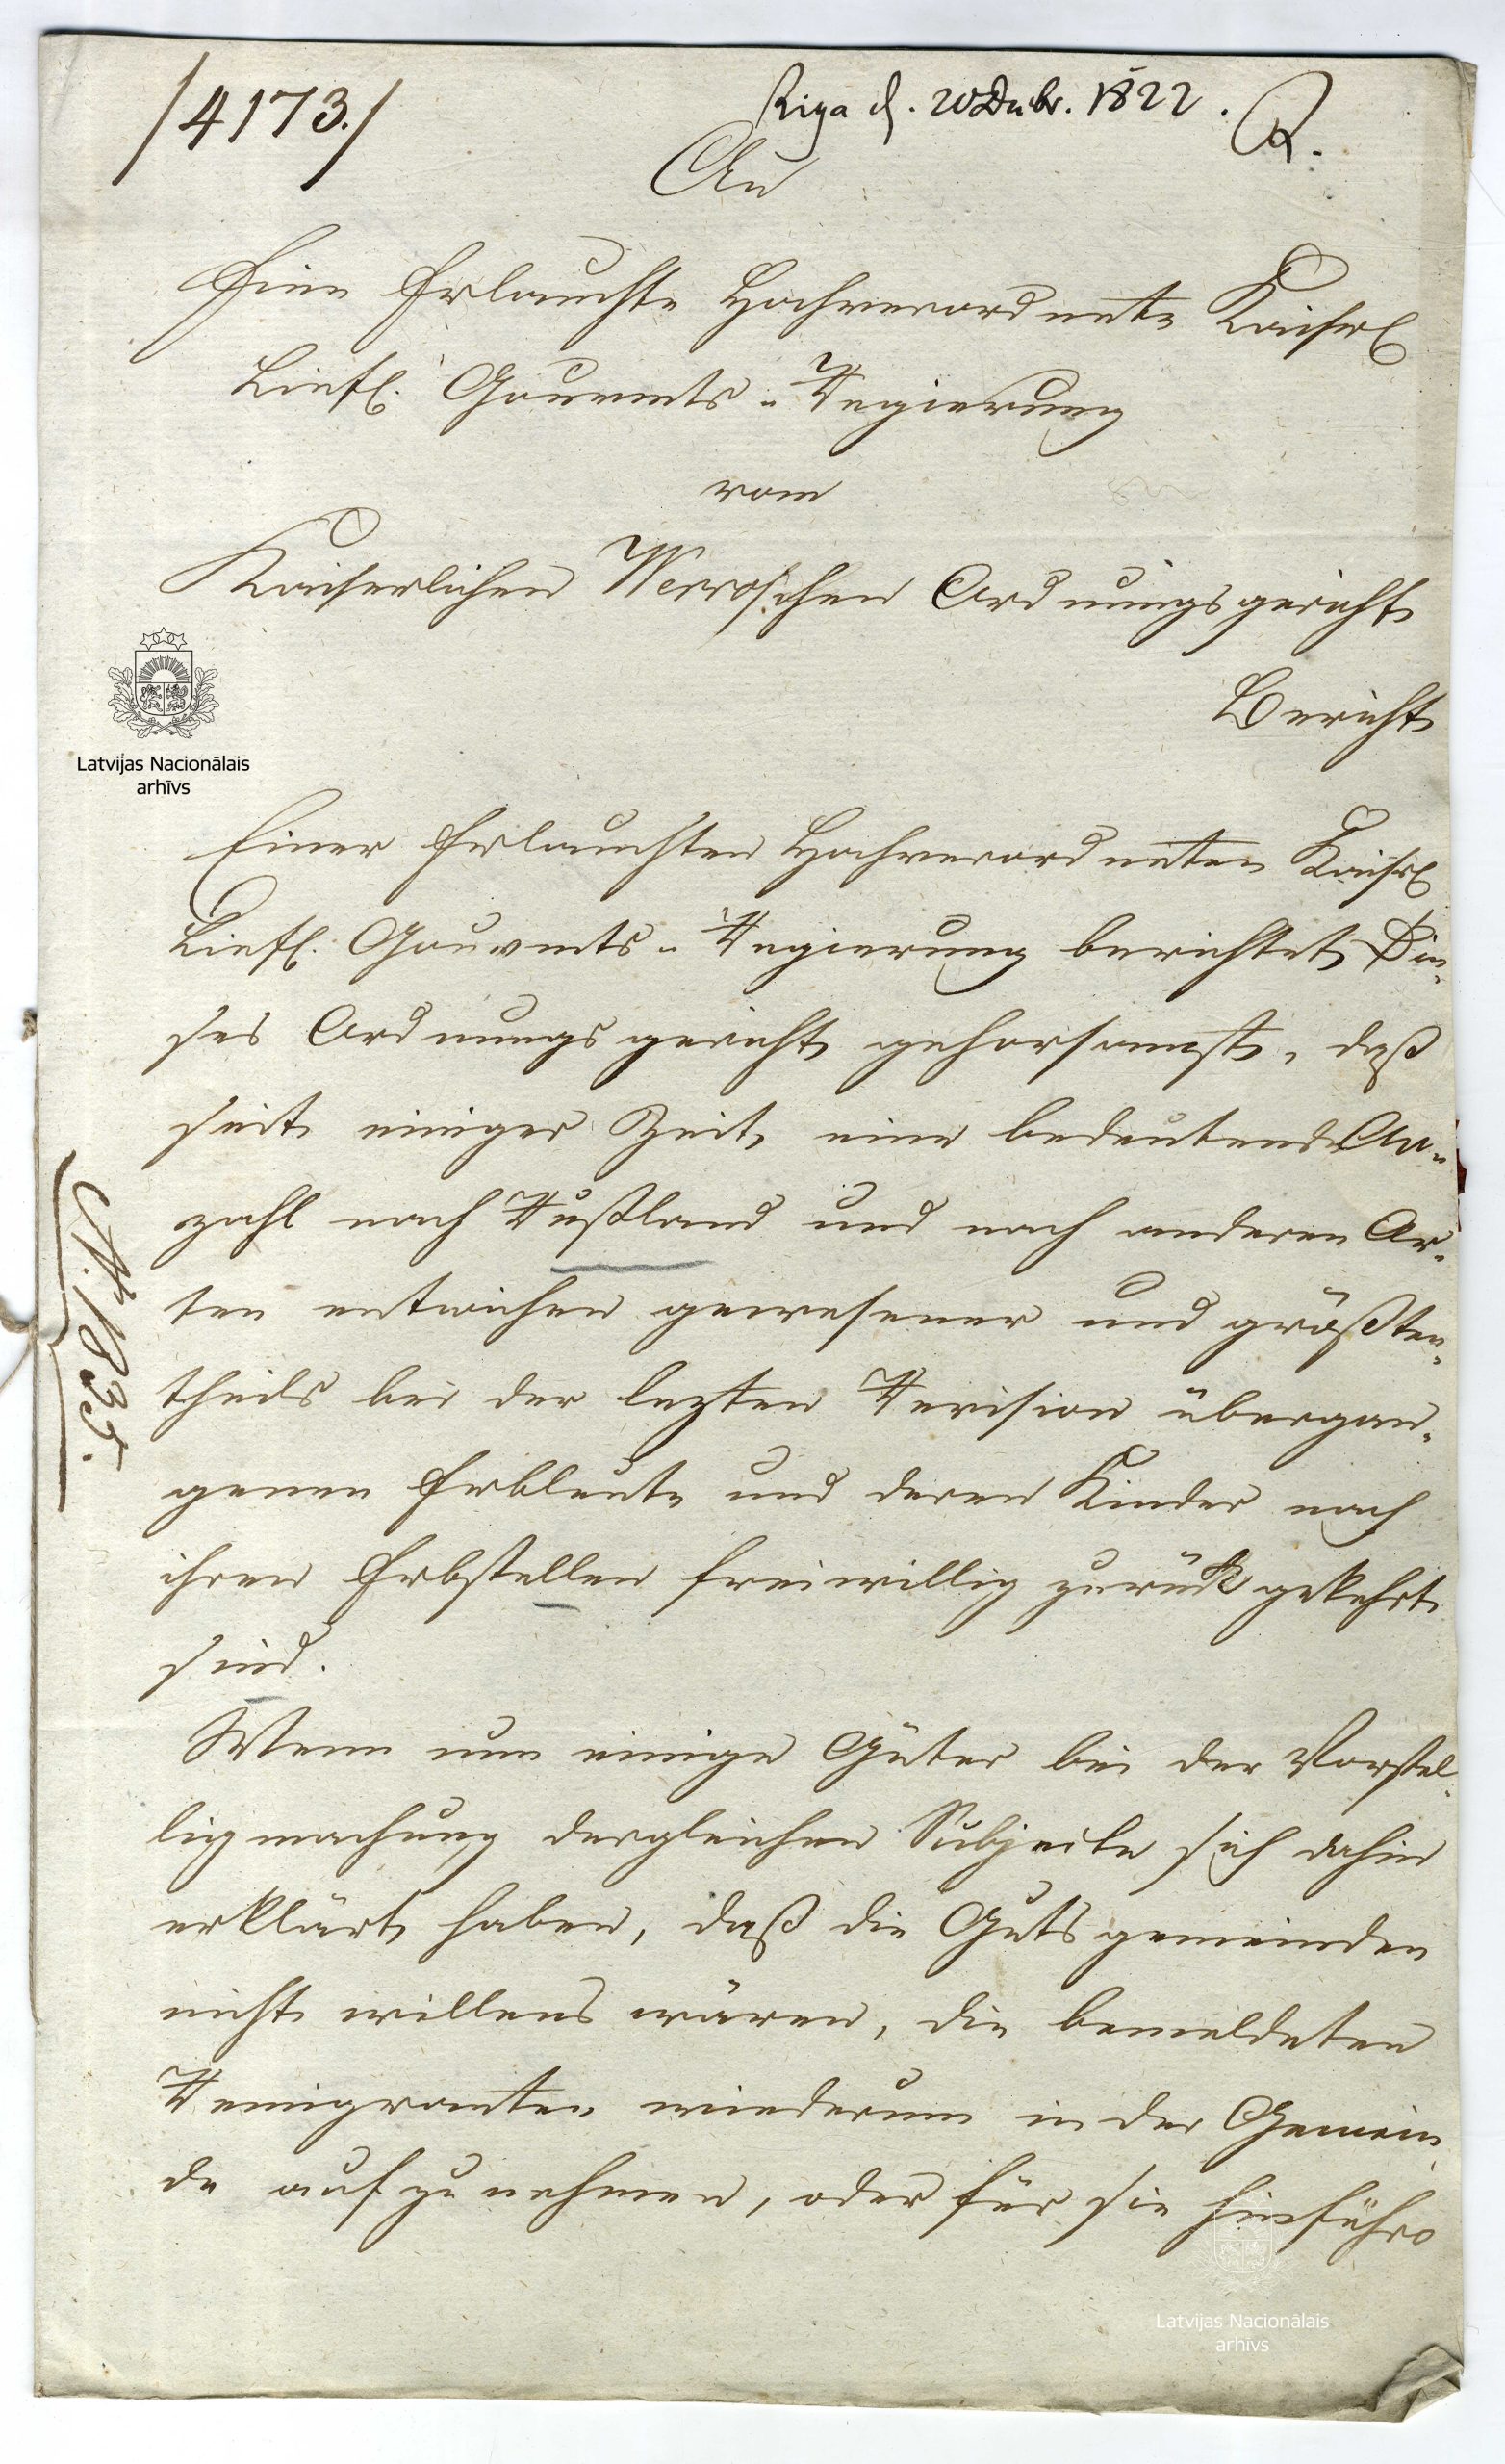 /4173./
Riga d. 20 Decbr. 1822.
R.
An
Eine Erlauchte Hochverordnete Kaiserl
Liefl. Gouvmts-Regierung
vom
Kaiserlichen Werroschen Ordnungsgericht
Bericht
Latvijas Nacionālais
arhīvs
Einer Erlauchten Hochverordneten Kaiserl
Liefl. Gouvmts-Regierung berichtet Die-
ses Ordnungsgericht gehorsamst, daß
seit einiger Zeit, eine bedeutende An-
zahl nach Rußland und nach anderen Or-
ten entwichen gewesener und größten-
theils bei der lezten Revision übergan-
genen Erbleute und deren Kinder nach
ihren Erbstellen freiwillig zurük gekehrt
sind.
Wenn nun einige Güter bei der Vorstel-
ligmachung dergleichen Subjecte sich dahin
erklärt haben, daß die Gutsgemeinden
nicht willens wären, die bemeldeten
Remigranten wiederum in der Gemein
de aufzunehmen, oder für sie hinführo
No 1835.
Latvijas Nacionālais
arhīvs